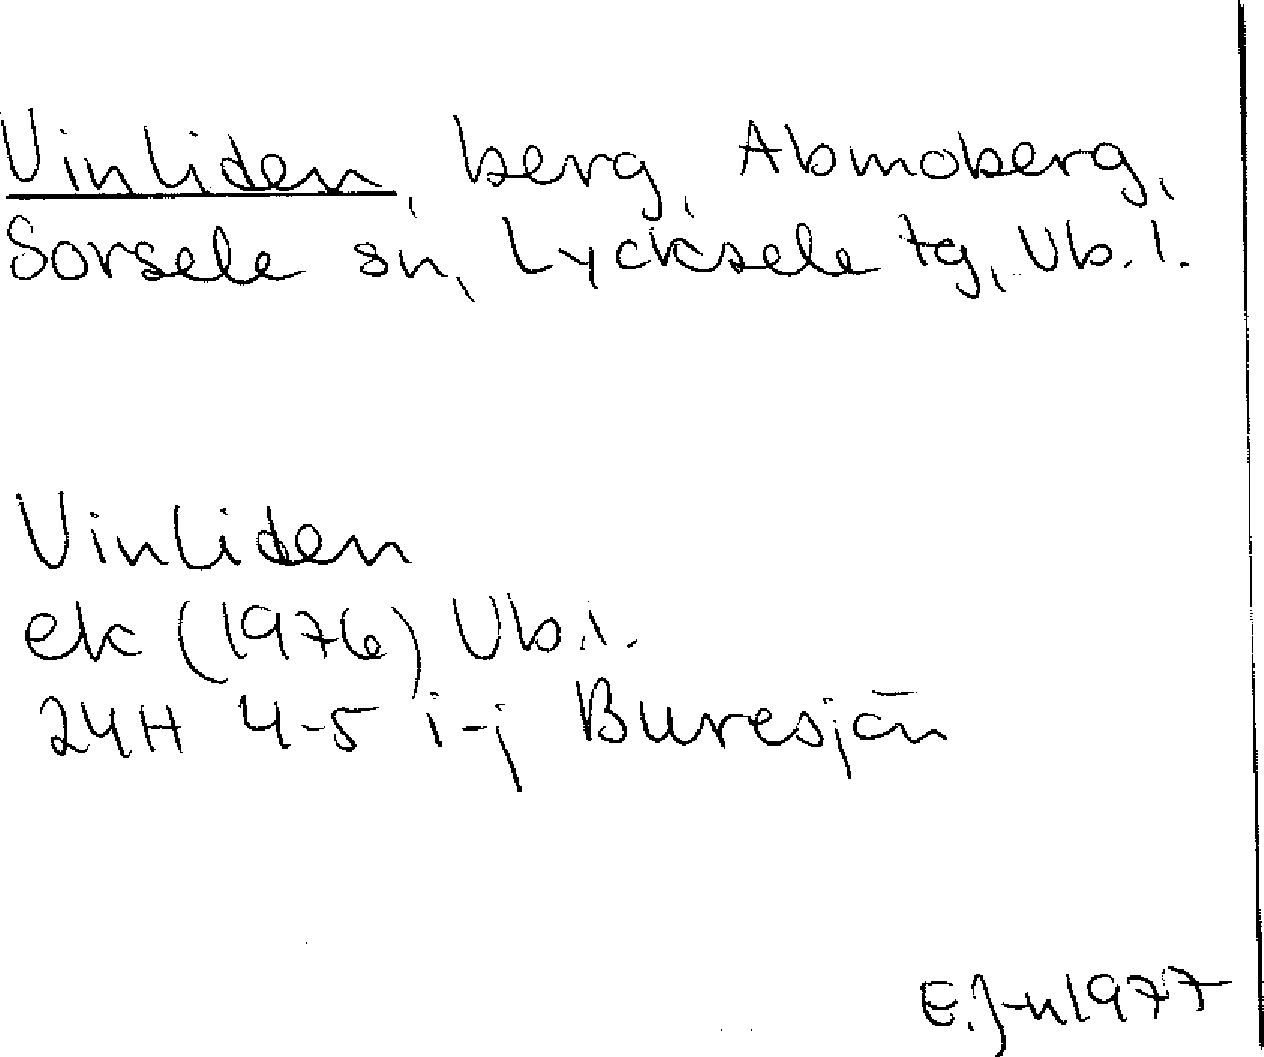 Vinliden, berg, Abmoberg,
Sorsele sn, Lycksele tg, Vb. l.
Vinliden
ek (1976) Vb. l.
24H 4-5 i-j Buresjön
E. J-n 1977